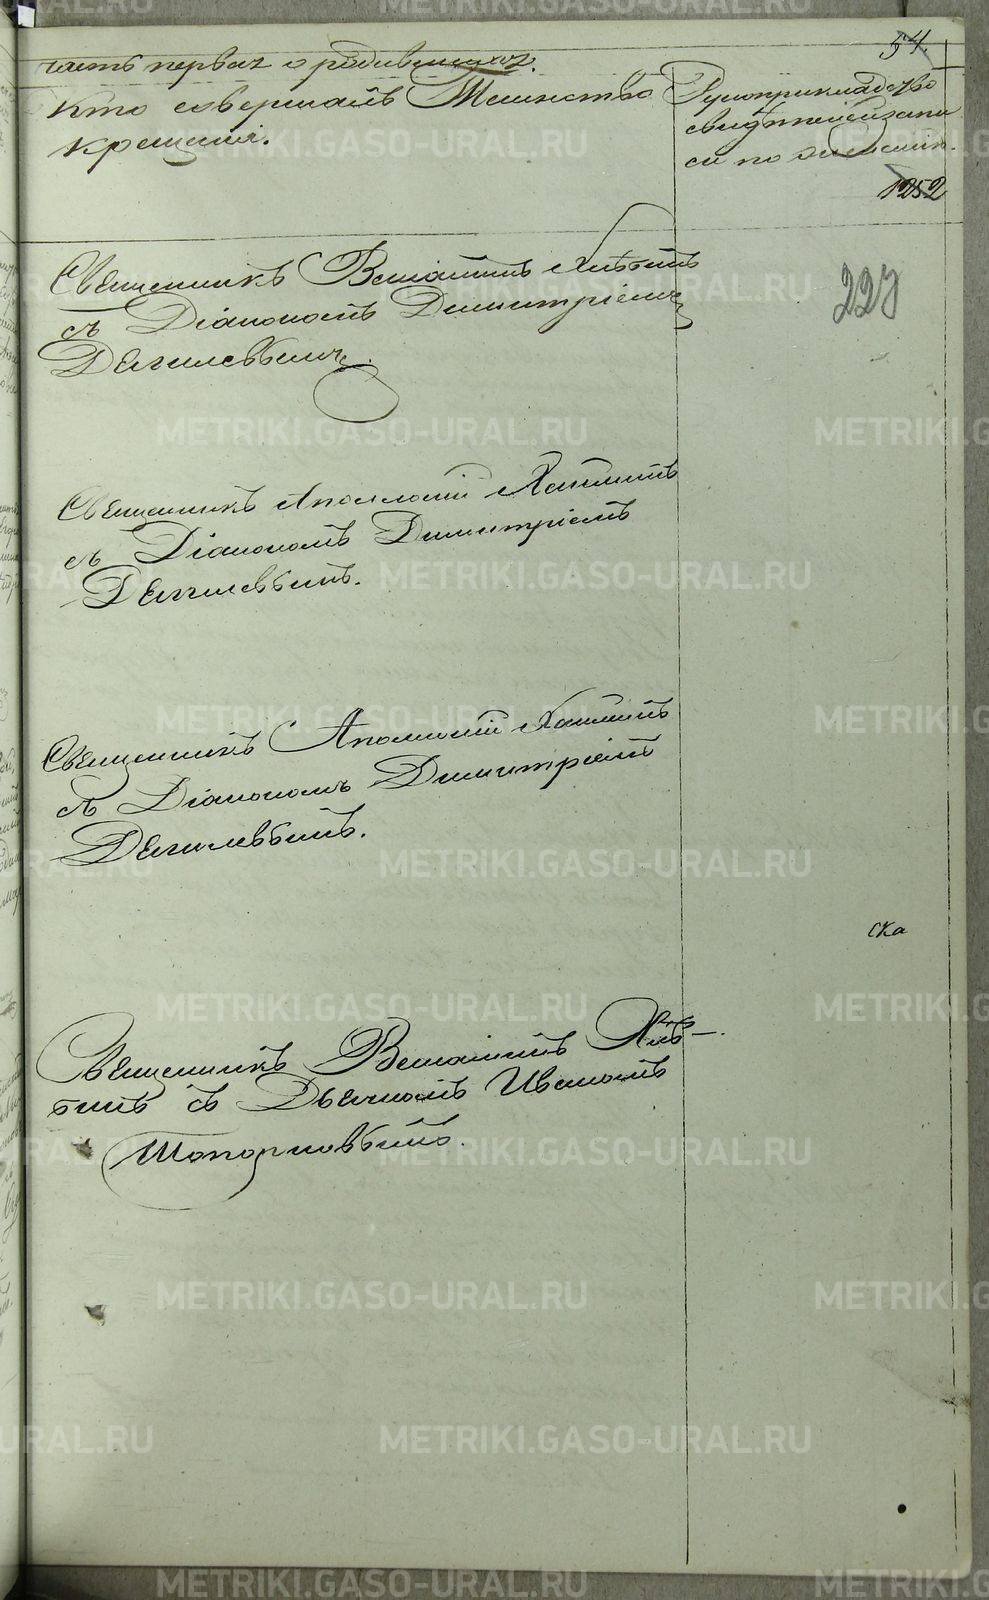 54.
часть первая о родившихся.
Кто совершалъ Таинство
крещенія.
Рукоприкладство
свидѣтелей записи
по желанію.
1252
227
Священникъ Веніаминъ Хлѣбинъ
съ Діакономъ Димитріемъ
Дягилевымъ.
Священникъ Аполлоній
съ Діакономъ Димитріемъ
Дягилевымъ.
Священникъ Аполлоній
съ Діакономъ Димитріемъ
Дягилевымъ.
ска
Священникъ Веніаминъ Хлѣ-
бинъ съ Дьячкомъ Иваномъ
Топорковымъ.
METRIKI.GASO-URAL.RU